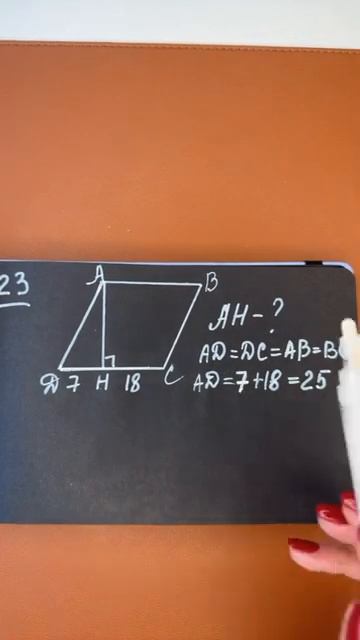 23
A B
D 7 H 18 C
AH-?
AD=DC=AB=B
AD=7+18=25